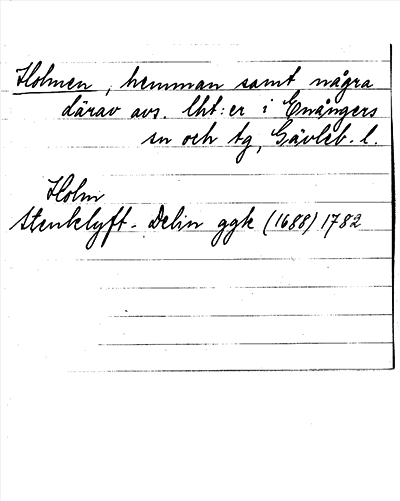 Holmen, hemman samt några
därav avs. lht:er i Enångers
sn och tg, Gävleb. l.
Holm
Stenklyft - Delin ggk (1688) 1782